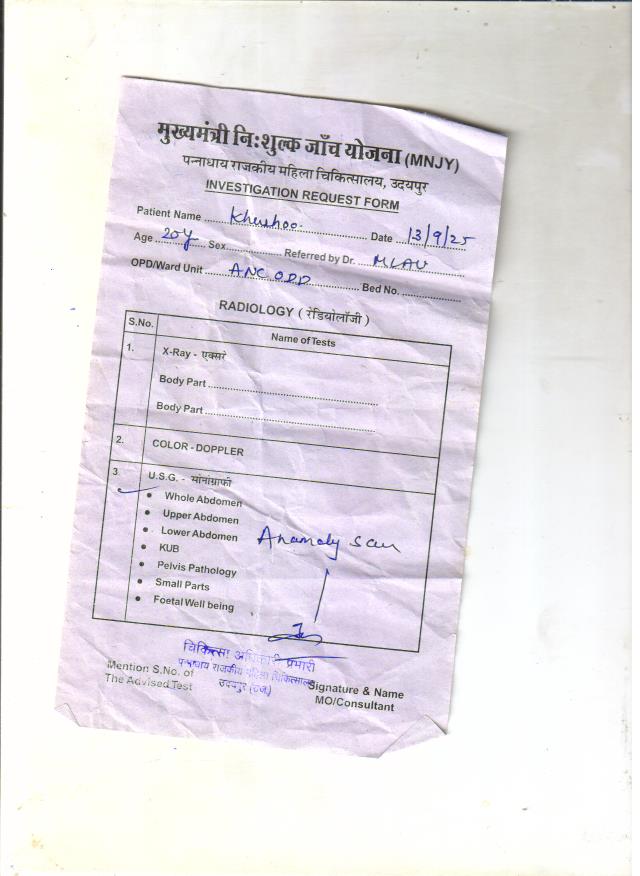 मुख्यमंत्री निःशुल्क जाँच योजना (MNJY)
पन्नाधाय राजकीय महिला चिकित्सालय, उदयपुर
INVESTIGATION REQUEST FORM
Patient Name ........ Date 13/9/25
Age 20y Sex ........ Referred by Dr. ........
OPD/Ward Unit ANC OPD Bed No. ........
RADIOLOGY ( रेडियोलॉजी )
S.No. Name of Tests
1. X-Ray - एक्सरे
Body Part ........
Body Part ........
2. COLOR - DOPPLER
3 U.S.G. - सोनोग्राफी
• Whole Abdomen
• Upper Abdomen
• Lower Abdomen Anamoly Scan
• KUB
• Pelvis Pathology
• Small Parts
• Foetal Well being
चिकित्सा अधिकारी प्रभारी
पन्नाधाय राजकीय महिला चिकित्सालय
उदयपुर (राज.)
Mention S.No. of
The Advised Test
Signature & Name
MO/Consultant